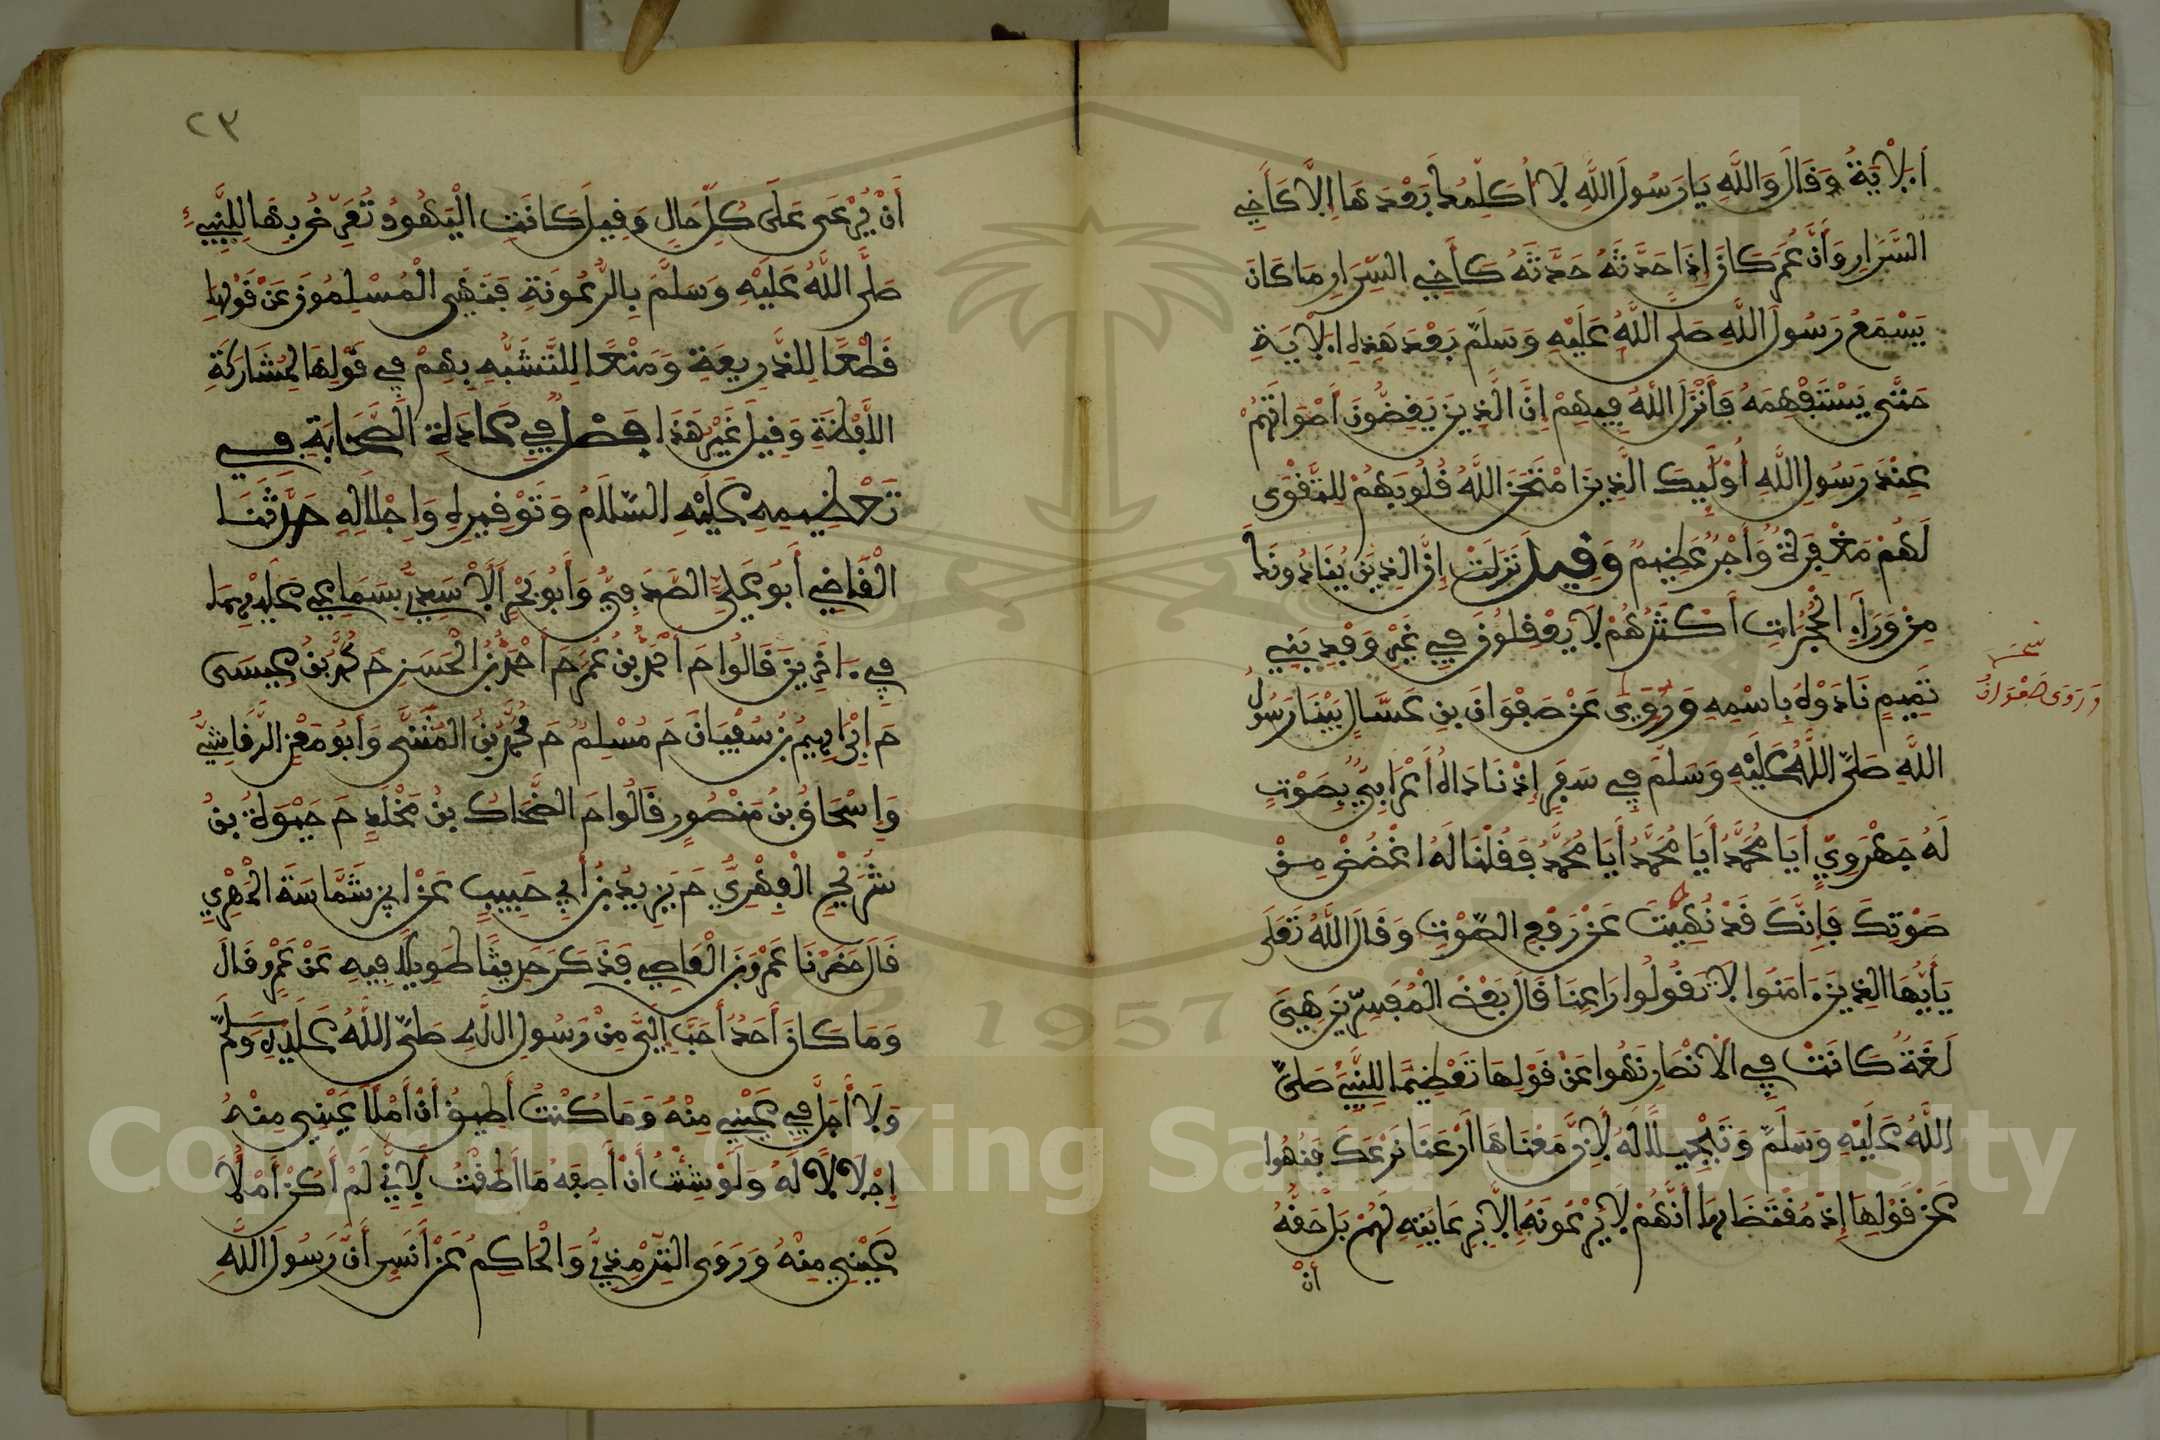 اَلْآيَةُ وَقَالَ وَاللَّهِ يَا رَسُولَ اللَّهِ لَا أُكَلِّمُكَ بَعْدَهَا إِلَّا كَأَخِي
السِّرَارِ وَأَنَّ عُمَرَ كَانَ إِذَا حَدَّثَهُ حَدَّثَهُ كَأَخِي السِّرَارِ مَا كَانَ
يَسْمَعُ رَسُولُ اللَّهِ صَلَّى اللَّهُ عَلَيْهِ وَسَلَّمَ بَعْدَ هَذِهِ الْآيَةِ
حَتَّى يَسْتَفْهِمَهُ فَأَنْزَلَ اللَّهُ فِيهِمْ إِنَّ الَّذِينَ يَغُضُّونَ أَصْوَاتَهُمْ
عِنْدَ رَسُولِ اللَّهِ أُولَٰئِكَ الَّذِينَ امْتَحَنَ اللَّهُ قُلُوبَهُمْ لِلتَّقْوَى
لَهُمْ مَغْفِرَةٌ وَأَجْرٌ عَظِيمٌ وَقِيلَ نَزَلَتْ إِنَّ الَّذِينَ يُنَادُونَكَ
مِنْ وَرَاءِ الْحُجُرَاتِ أَكْثَرُهُمْ لَا يَعْقِلُونَ فِي غَيْرِ وَفْدِ بَنِي
تَمِيمٍ نَادَوْهُ بِاسْمِهِ وَرُوِيَ عَنْ صَفْوَانَ بْنِ عَسَّالٍ بَيْنَا رَسُولُ
اللَّهِ صَلَّى اللَّهُ عَلَيْهِ وَسَلَّمَ فِي سَفَرٍ إِذْ نَادَاهُ أَعْرَابِيٌّ بِصَوْتٍ
لَهُ جَهْوَرِيٍّ أَيَا مُحَمَّدُ أَيَا مُحَمَّدُ أَيَا مُحَمَّدُ فَقُلْنَا لَهُ اغْضُضْ مِنْ
صَوْتِكَ فَإِنَّكَ قَدْ نُهِيتَ عَنْ رَفْعِ الصَّوْتِ وَقَالَ اللَّهُ تَعَلَى
يَأَيُّهَا الَّذِينَ ءَامَنُوا لَا تَقُولُوا رَاعِنَا قَالَ بَعْضُ الْمُفَسِّرِينَ هِيَ
لُغَةٌ كَانَتْ فِي الْأَنْصَارِ نُهُوا عَنْ قَوْلِهَا تَعْظِيمًا لِلنَّبِيِّ صَلَّى
اللَّهُ عَلَيْهِ وَسَلَّمَ وَتَبْجِيلًا لَهُ لِأَنَّ مَعْنَاهَا ارْعَنَا نَرْعَكَ فَنُهُوا
عَنْ قَوْلِهَا إِذْ مُقْتَضَاهَا أَنَّهُمْ لَا يَرْعَوْنَهُ إِلَّا بِرِعَايَتِهِ لَهُمْ بَلْ حَقُّهُ
أَنْ
وَرَوَى صَفْوَانُ
٢٣
أَنْ يُرْعَى عَلَى كُلِّ حَالٍ وَقِيلَ كَانَتِ الْيَهُودُ تُعَرِّضُ بِهَا لِلنَّبِيِّ
صَلَّى اللَّهُ عَلَيْهِ وَسَلَّمَ بِالرُّعُونَةِ فَنُهِيَ الْمُسْلِمُونَ عَنْ قَوْلِهَا
قَطْعًا لِلذَّرِيعَةِ وَمَنْعًا لِلتَّشَبُّهِ بِهِمْ فِي قَوْلِهَا لِمُشَارَكَةِ
اللَّفْظَةِ وَقِيلَ غَيْرُ هَذَا فَصْلٌ فِي عَادَةِ الصَّحَابَةِ فِي
تَعْظِيمِهِ عَلَيْهِ السَّلَامُ وَتَوْقِيرِهِ وَإِجْلَالِهِ حَدَّثَنَا
الْقَاضِي أَبُو عَلِيٍّ الصَّدَفِيُّ وَأَبُو بَحْرٍ الْأَسَدِيُّ بِسَمَاعِي عَلَيْهِمَا
فِي ءَاخَرِينَ قَالُوا حَ أَحْمَدُ بْنُ عُمَرَ حَ أَحْمَدُ بْنُ الْحَسَنِ حَ مُحَمَّدُ بْنُ عِيسَى
حَ إِبْرَاهِيمُ بْنُ سُفْيَانَ حَ مُسْلِمٌ حَ مُحَمَّدُ بْنُ الْمُثَنَّى وَأَبُو مَعْنٍ الرَّقَاشِيُّ
وَإِسْحَاقُ بْنُ مَنْصُورٍ قَالُوا حَ الضَّحَّاكُ بْنُ مَخْلَدٍ حَ حَيْوَةُ بْنُ
شُرَيْحٍ الْفِهْرِيُّ حَ يَزِيدُ بْنُ أَبِي حَبِيبٍ عَنِ ابْنِ شَمَّاسَةَ الْمَهْرِيِّ
قَالَ حَضَرْنَا عَمْرَو بْنَ الْعَاصِي فَذَكَرَ حَدِيثًا طَوِيلًا فِيهِ عَنْ عَمْرٍو قَالَ
وَمَا كَانَ أَحَدٌ أَحَبَّ إِلَيَّ مِنْ رَسُولِ اللَّهِ صَلَّى اللَّهُ عَلَيْهِ وَسَلَّمَ
وَلَا أَجَلَّ فِي عَيْنِي مِنْهُ وَمَا كُنْتُ أُطِيقُ أَنْ أَمْلَأَ عَيْنِي مِنْهُ
إِجْلَالًا لَهُ وَلَوْ شِئْتُ أَنْ أَصِفَهُ مَا أَطَقْتُ لِأَنِّي لَمْ أَكُنْ أَمْلَأُ
عَيْنِي مِنْهُ وَرَوَى التِّرْمِذِيُّ وَالْحَاكِمُ عَنْ أَنَسٍ أَنَّ رَسُولَ اللَّهِ
1957
Copyright © King Saud University